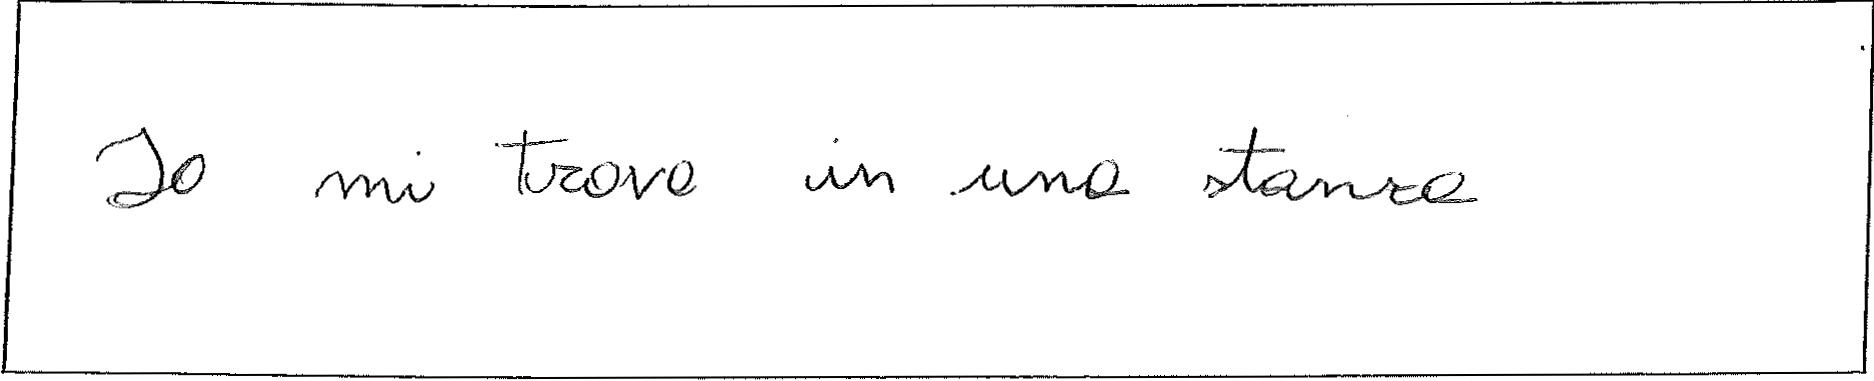 Io mi trovo in una stanza